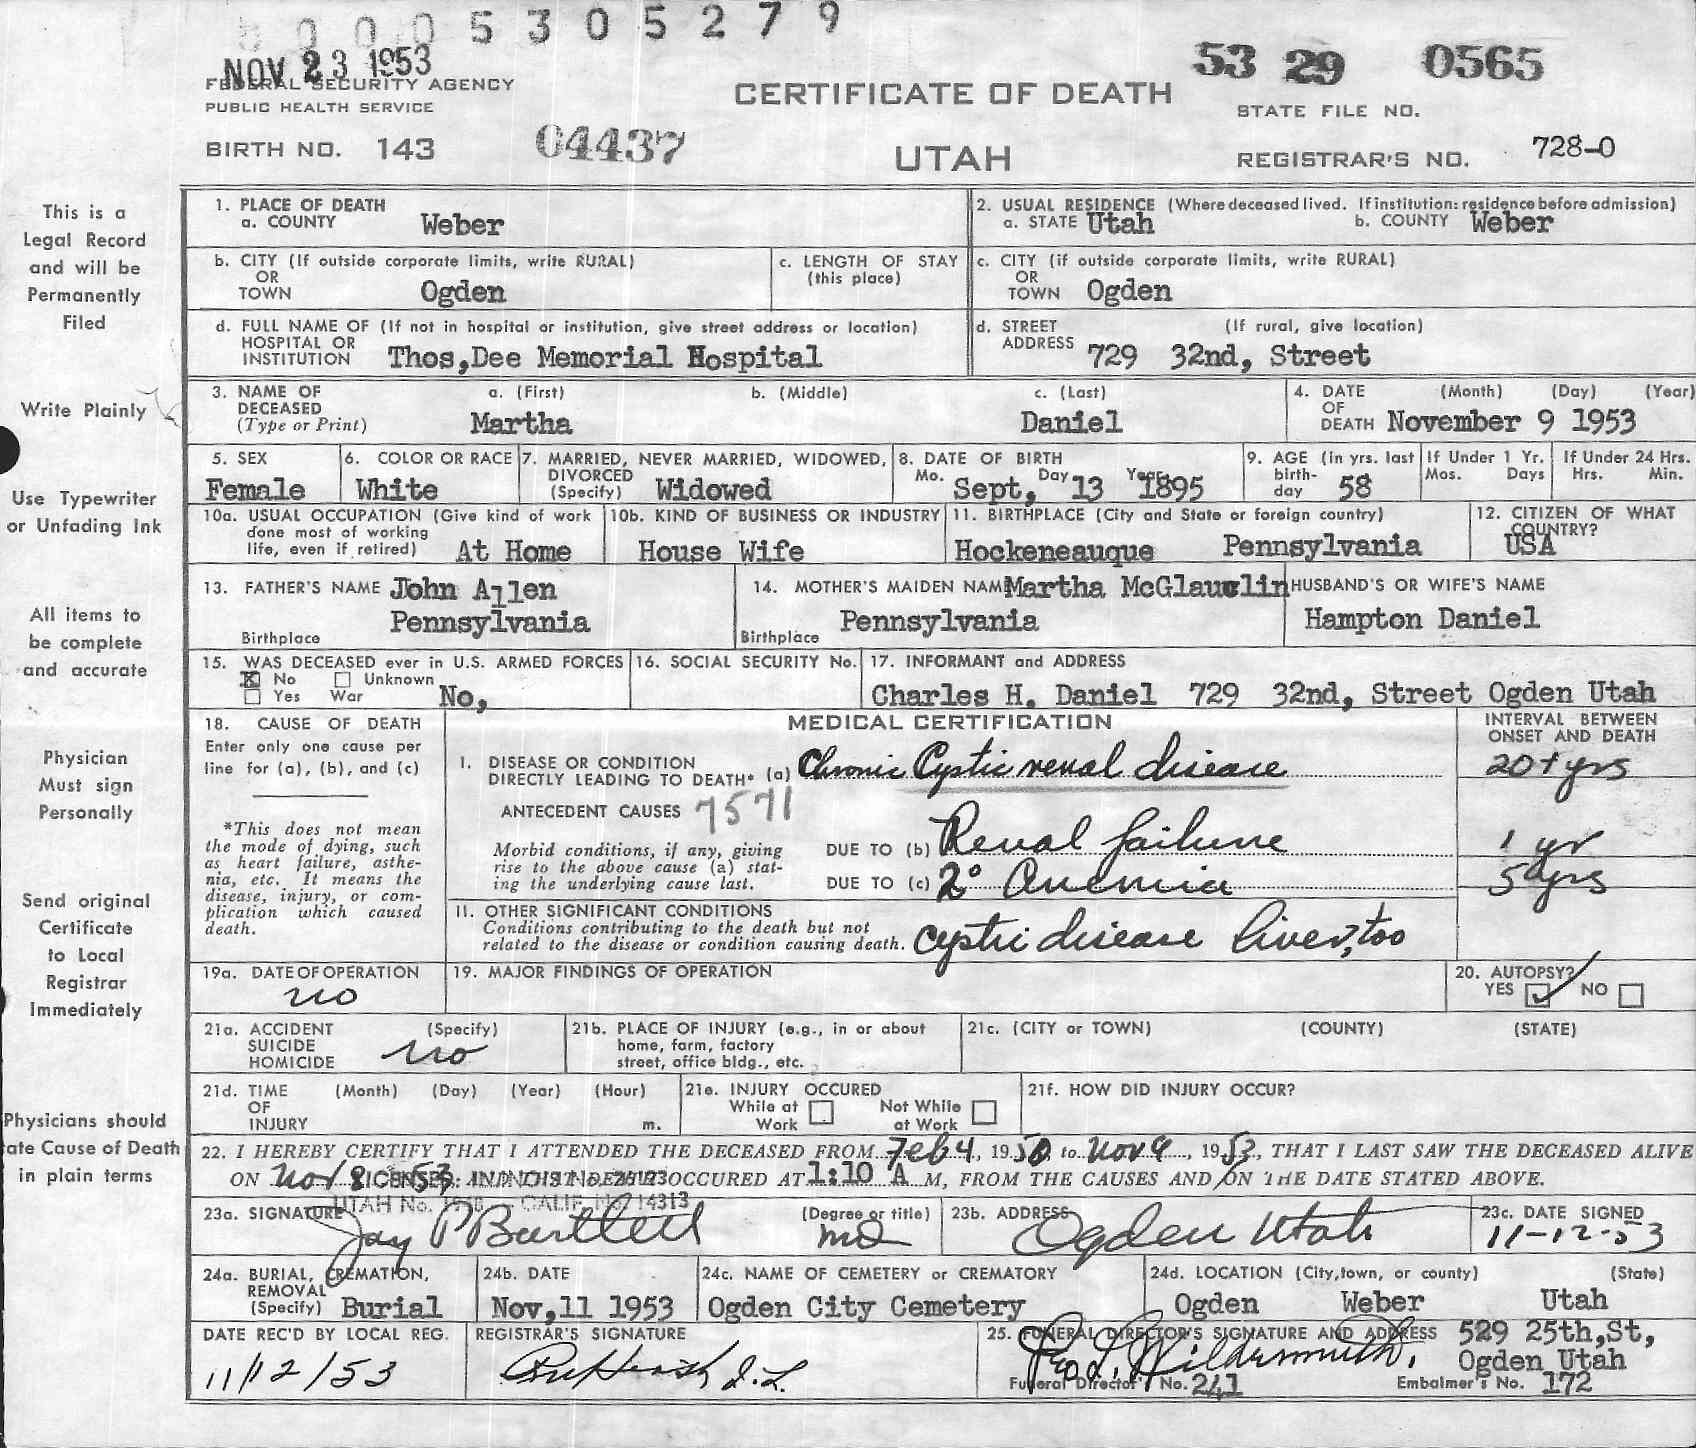 0 0 0 5 3 0 5 2 7 9
NOV 23 1953
53 29 0565
FEDERAL SECURITY AGENCY
PUBLIC HEALTH SERVICE
CERTIFICATE OF DEATH
STATE FILE NO.
BIRTH NO. 143 04437
UTAH
REGISTRAR'S NO. 728-0
This is a
Legal Record
and will be
Permanently
Filed
Write Plainly
Use Typewriter
or Unfading Ink
All items to
be complete
and accurate
Physician
Must sign
Personally
Send original
Certificate
to Local
Registrar
Immediately
Physicians should
ate Cause of Death
in plain terms
1. PLACE OF DEATH
a. COUNTY Weber
2. USUAL RESIDENCE (Where deceased lived. If institution: residence before admission)
a. STATE Utah b. COUNTY Weber
b. CITY (If outside corporate limits, write RURAL)
OR
TOWN Ogden
c. LENGTH OF STAY
(this place)
c. CITY (if outside corporate limits, write RURAL)
OR
TOWN Ogden
d. FULL NAME OF (If not in hospital or institution, give street address or location)
HOSPITAL OR
INSTITUTION Thos,Dee Memorial Hospital
d. STREET (If rural, give location)
ADDRESS 729 32nd, Street
3. NAME OF DECEASED
(Type or Print)
a. (First) b. (Middle) c. (Last)
Martha Daniel
4. DATE (Month) (Day) (Year)
OF
DEATH November 9 1953
5. SEX
Female
6. COLOR OR RACE
White
7. MARRIED, NEVER MARRIED, WIDOWED,
DIVORCED
(Specify) Widowed
8. DATE OF BIRTH
Mo. Day Year
Sept, 13 1895
9. AGE (in yrs. last
birth-
day 58
If Under 1 Yr.
Mos. Days
If Under 24 Hrs.
Hrs. Min.
10a. USUAL OCCUPATION (Give kind of work
done most of working
life, even if retired) At Home
10b. KIND OF BUSINESS OR INDUSTRY
House Wife
11. BIRTHPLACE (City and State or foreign country)
Hockeneauque Pennsylvania
12. CITIZEN OF WHAT
COUNTRY?
USA
13. FATHER'S NAME John Allen
Birthplace Pennsylvania
14. MOTHER'S MAIDEN NAME Martha McGlauclin
Birthplace Pennsylvania
HUSBAND'S OR WIFE'S NAME
Hampton Daniel
15. WAS DECEASED ever in U.S. ARMED FORCES
No Unknown
Yes War No,
16. SOCIAL SECURITY No.
17. INFORMANT and ADDRESS
Charles H. Daniel 729 32nd, Street Ogden Utah
18. CAUSE OF DEATH
Enter only one cause per
line for (a), (b), and (c)
*This does not mean
the mode of dying, such
as heart failure, asthe-
nia, etc. It means the
disease, injury, or com-
plication which caused
death.
MEDICAL CERTIFICATION
INTERVAL BETWEEN
ONSET AND DEATH
I. DISEASE OR CONDITION
DIRECTLY LEADING TO DEATH* (a) Chronic Cystic renal disease 20+ yrs
ANTECEDENT CAUSES 7571
Morbid conditions, if any, giving
rise to the above cause (a) stat-
ing the underlying cause last.
DUE TO (b) Renal failure 1 yr
DUE TO (c) 2° Anemia 5 yrs
II. OTHER SIGNIFICANT CONDITIONS
Conditions contributing to the death but not
related to the disease or condition causing death. Cystic disease liver, too
19a. DATE OF OPERATION
no
19. MAJOR FINDINGS OF OPERATION
20. AUTOPSY?
YES NO
21a. ACCIDENT (Specify)
SUICIDE
HOMICIDE no
21b. PLACE OF INJURY (e.g., in or about
home, farm, factory
street, office bldg., etc.
21c. (CITY or TOWN) (COUNTY) (STATE)
21d. TIME (Month) (Day) (Year) (Hour)
OF
INJURY m.
21e. INJURY OCCURED
While at Work Not While at Work
21f. HOW DID INJURY OCCUR?
22. I HEREBY CERTIFY THAT I ATTENDED THE DECEASED FROM Feb 4, 1950 to Nov 9, 1953, THAT I LAST SAW THE DECEASED ALIVE
ON Nov 8 1953, AND THAT DEATH OCCURED AT 1:10 A M, FROM THE CAUSES AND ON THE DATE STATED ABOVE.
23a. SIGNATURE Jay P Bartlett
(Degree or title) MD
23b. ADDRESS Ogden Utah
23c. DATE SIGNED
11-12-53
24a. BURIAL, CREMATION,
REMOVAL
(Specify) Burial
24b. DATE
Nov,11 1953
24c. NAME OF CEMETERY or CREMATORY
Ogden City Cemetery
24d. LOCATION (City, town, or county) (State)
Ogden Weber Utah
DATE REC'D BY LOCAL REG.
11/12/53
REGISTRAR'S SIGNATURE
25. FUNERAL DIRECTOR'S SIGNATURE AND ADDRESS 529 25th,St,
Ogden Utah
Funeral Director's No. 241 Embalmer's No. 172